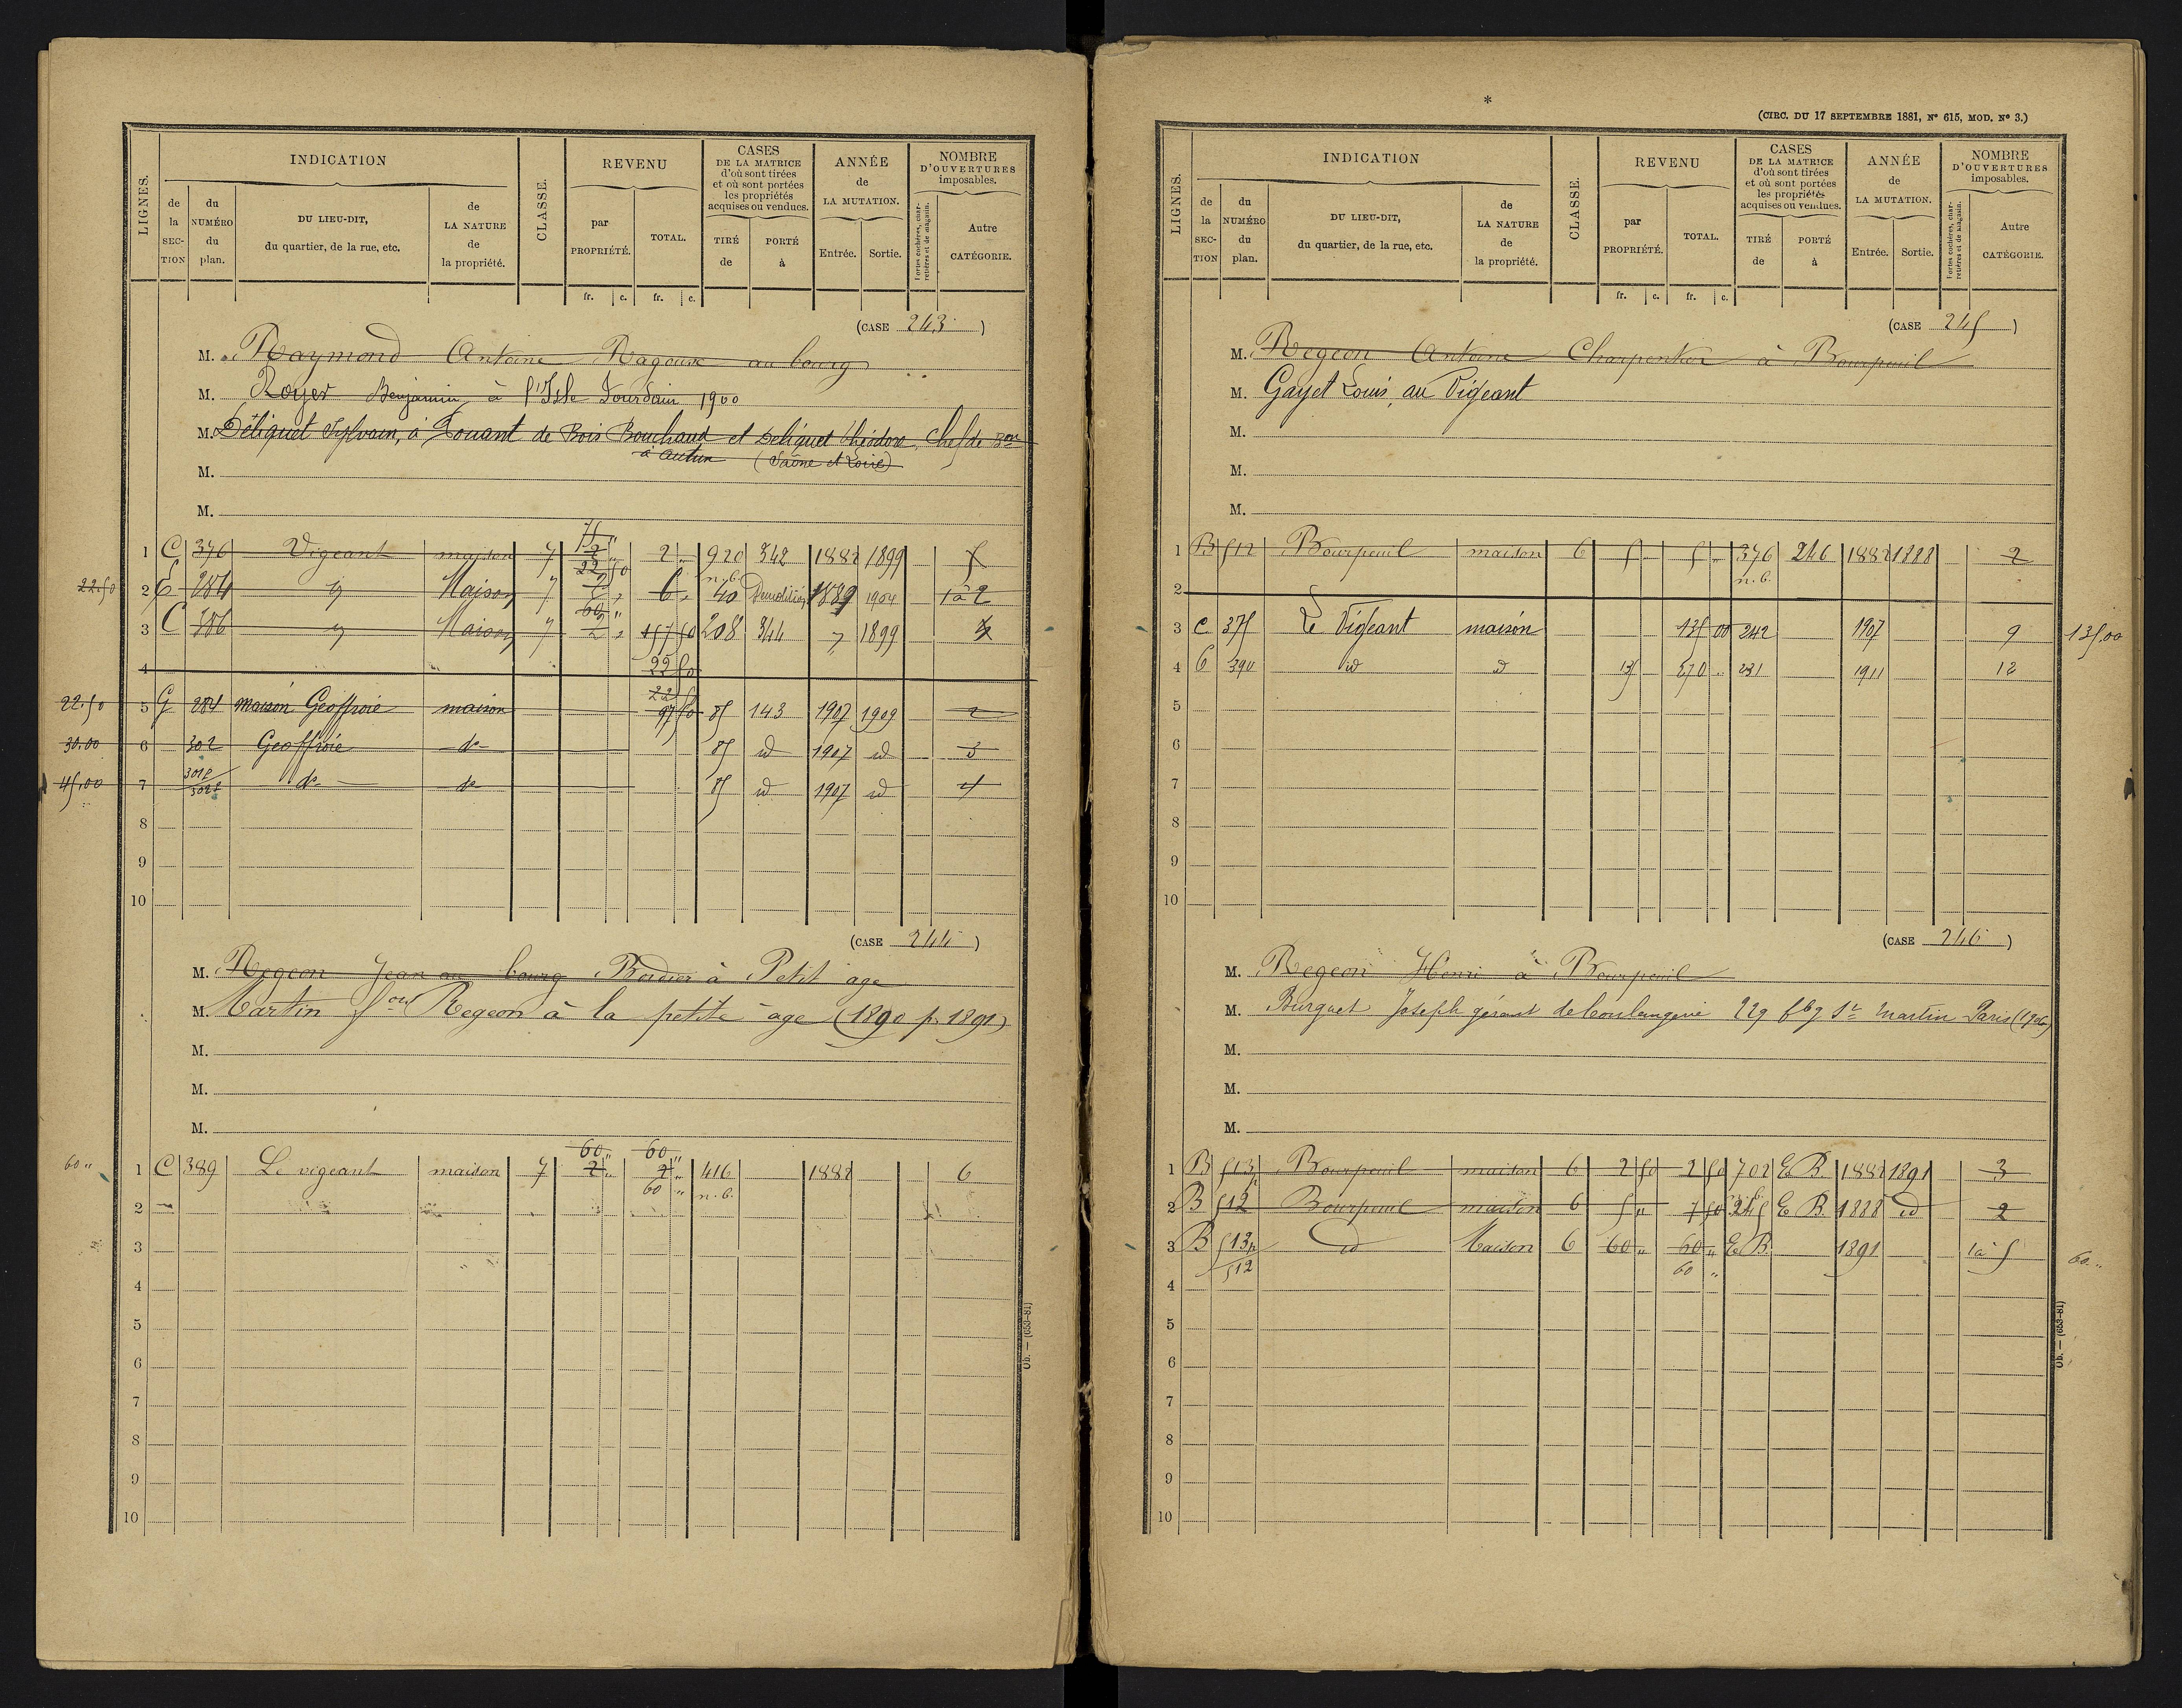 INDICATION
CLASSE.
REVENU
CASES
DE LA MATRICE
d'où sont tirées
et où sont portées
les propriétés
acquises ou vendues.
ANNÉE
de
LA MUTATION.
NOMBRE
D'OUVERTURES
imposables.
LIGNES.
de la SECTION
du NUMÉRO du plan.
DU LIEU-DIT,
du quartier, de la rue, etc.
de LA NATURE de la propriété.
par PROPRIÉTÉ.
TOTAL.
TIRÉ de
PORTÉ à
Entrée.
Sortie.
Portes cochères, charretières et de magasin.
Autre CATÉGORIE.
fr. c. fr. c.
(CASE 243)
M. Raymond Antoine Ragouse au bourg
M. Royer Benjamin, à l'Isle Jourdain 1900
M. Déliquet Sylvain, à Louant de Bois Bouchaud et Deliquet théodore, chef de Bon
à Autun (Saône et Loire)
M.
M.
75 "
1 C 376 Vigeant maison 7 2 2 " 920 342 1882 1899
22 50 n.b.
22.50 2 284 Maison 7 6 " 40 Démolition 1889 1904 1 à 2
60 "
3 C 386 Maison 7 2 " 157 50 208 344 1899
4 22 50
22 50
22.50 5 G 284 maison Geoffroie maison 97 50 85 143 1907 1909 2
30.00 6 302 Geoffroie do 85 id 1907 id 3
45.00 7 do do 85 id 1907 id 4
8
9
10
(CASE 244)
M. Regeon Jean au bourg Bordier à Petit age
M. Martin fois Regeon à la petite âge (1890 p. 1891)
M.
M.
M.
60 " 60 "
60 " 1 C 389 Le vigeant maison 7 2 " 2 " 416 1882 6
60 " n.b.
2
3
4
5
6
7
8
9
10
Ob. — (653-81)
*
(CIRC. DU 17 SEPTEMBRE 1881, N° 615, MOD. N° 3.)
INDICATION
CLASSE.
REVENU
CASES
DE LA MATRICE
d'où sont tirées
et où sont portées
les propriétés
acquises ou vendues.
ANNÉE
de
LA MUTATION.
NOMBRE
D'OUVERTURES
imposables.
LIGNES.
de la SECTION
du NUMÉRO du plan.
DU LIEU-DIT,
du quartier, de la rue, etc.
de LA NATURE de la propriété.
par PROPRIÉTÉ.
TOTAL.
TIRÉ de
PORTÉ à
Entrée.
Sortie.
Portes cochères, charretières et de magasin.
Autre CATÉGORIE.
fr. c. fr. c.
(CASE 245)
M. Regeon Antoine Charpentier à Bourpeuil
M. Gayet Louis, au Vigeant
M.
M.
M.
1 B 512 Bourpeuil maison 6 5 5 " 376 246 1882 1888 2
n.b.
2
3 C 375 Le Vigeant maison 135 00 242 1907 9 135.00
4 C 390 id id 135 270 " 231 1911 12
5
6
7
8
9
10
(CASE 246)
M. Regeon Henri à Bourpeuil
M. Burguet Joseph gérant de boulangerie 229 fbg St Martin Paris (1906)
M.
M.
M.
1 B 513p Bourpeuil maison 6 2 50 2 50 702 E B. 1882 1891 3
2 B 512 Bourpeuil maison 6 5 " 7 50 245 E B. 1888 id 2
3 B 513p id Maison 6 60 " 60 " E B. 1891 1 à 5 60 "
512 60 "
4
5
6
7
8
9
10
Ob. — (653-81)